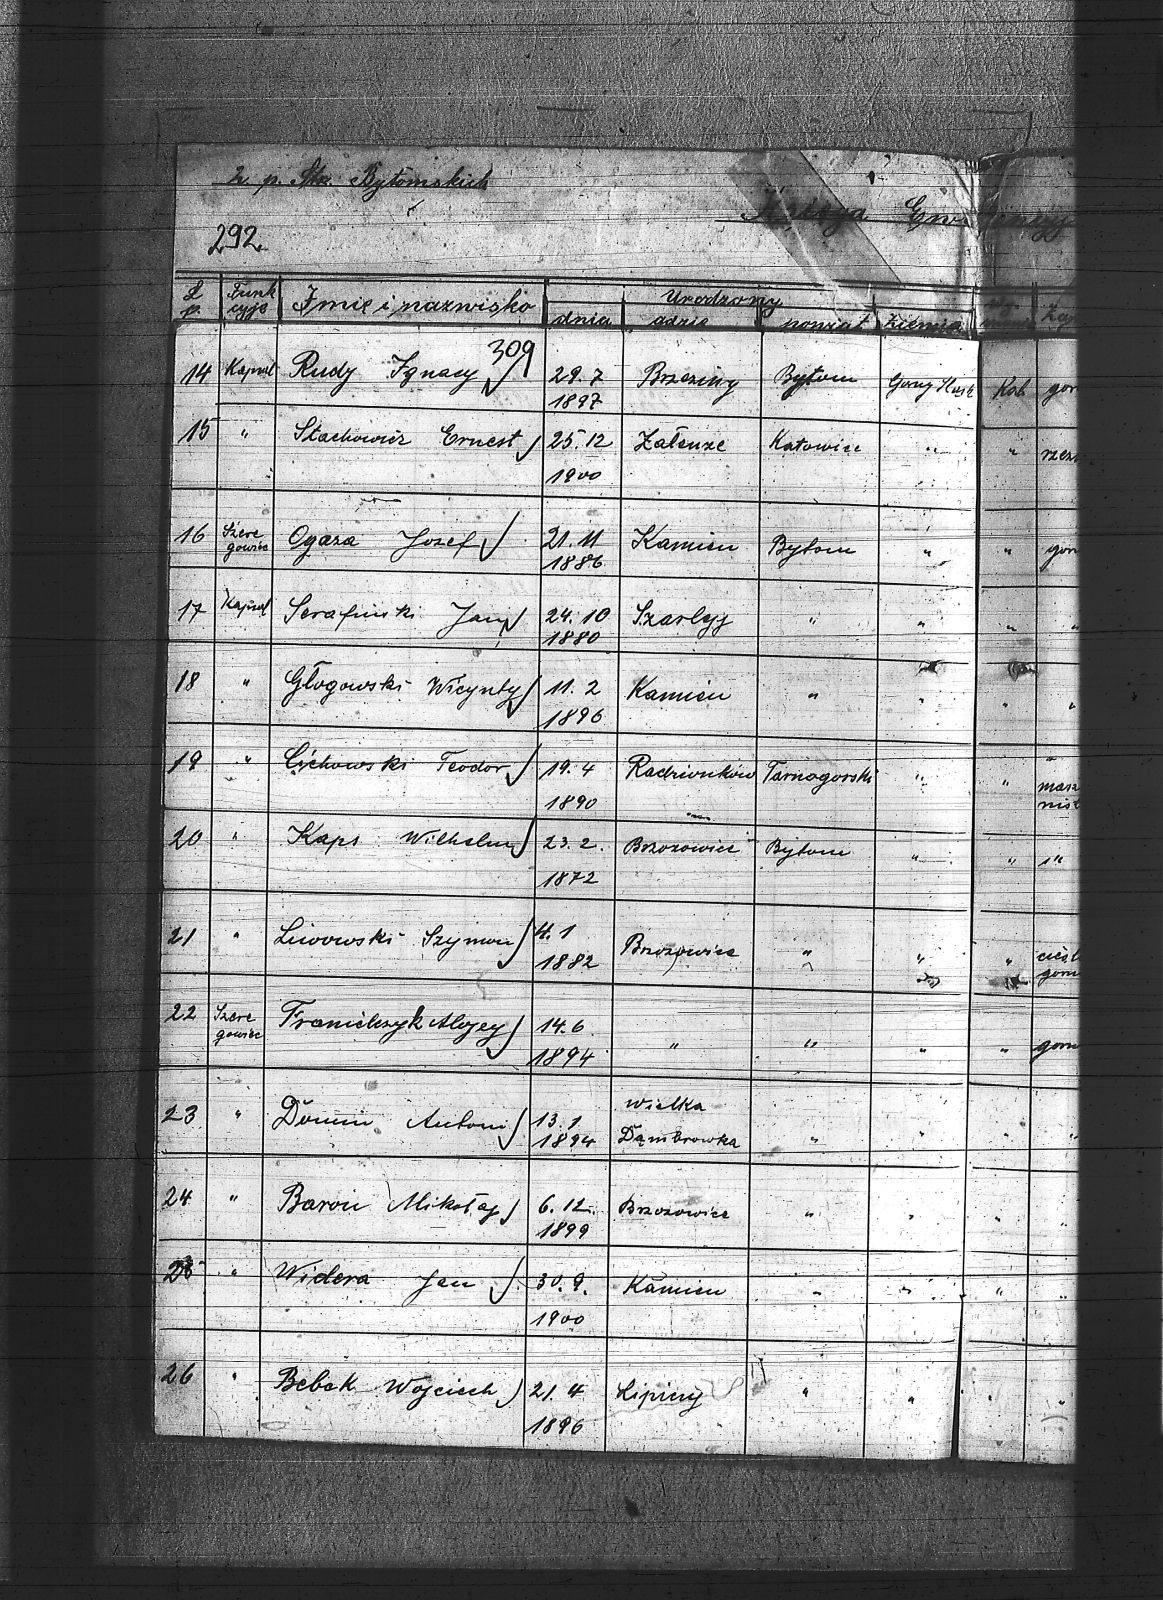 2. p. Str. Bytomskich
Księga Ewidencyj
292
L. p. Funkcyje Imię i nazwisko Urodzony
dnia gdzie powiat Ziemia
309
14 Kapral Rudy Ignacy 29.7 1897 Brzeziny Bytom Gorny Kat. gor
15 " Stachowicz Ernest 25.12 1900 Załenże Katowice " " rzez
16 Szeregowiec Ogaza Jozef 21.11 1886 Kamien Bytom " " gor
17 Kapral Serafinski Jan 24.10 1880 Szarlej " " " "
18 " Głogowski Wicynty 11.2 1896 Kamien " " " "
19 " Cichowski Teodor 19.4 1890 Radzionków Tarnogorski " " masz nist
20 " Kaps Wilhelm 23.2. 1872 Brzozowice Bytom " " "
21 " Lwowski Szymon 4.1 1882 Brzozowice " " " cieśl gorn
22 Szeregowiec Franielczyk Alojzy 14.6. 1894 " " " " gorn
23 " Domin Antoni 13.1 1894 Wielka Dąmbrowka " " " "
24 " Baron Mikołaj 6.12. 1899 Brzozowice " " " "
25 " Widera Jan 30.9. 1900 Kamien " " " "
26 " Bebek Wojciech 21.4 1896 Lipiny " " " "